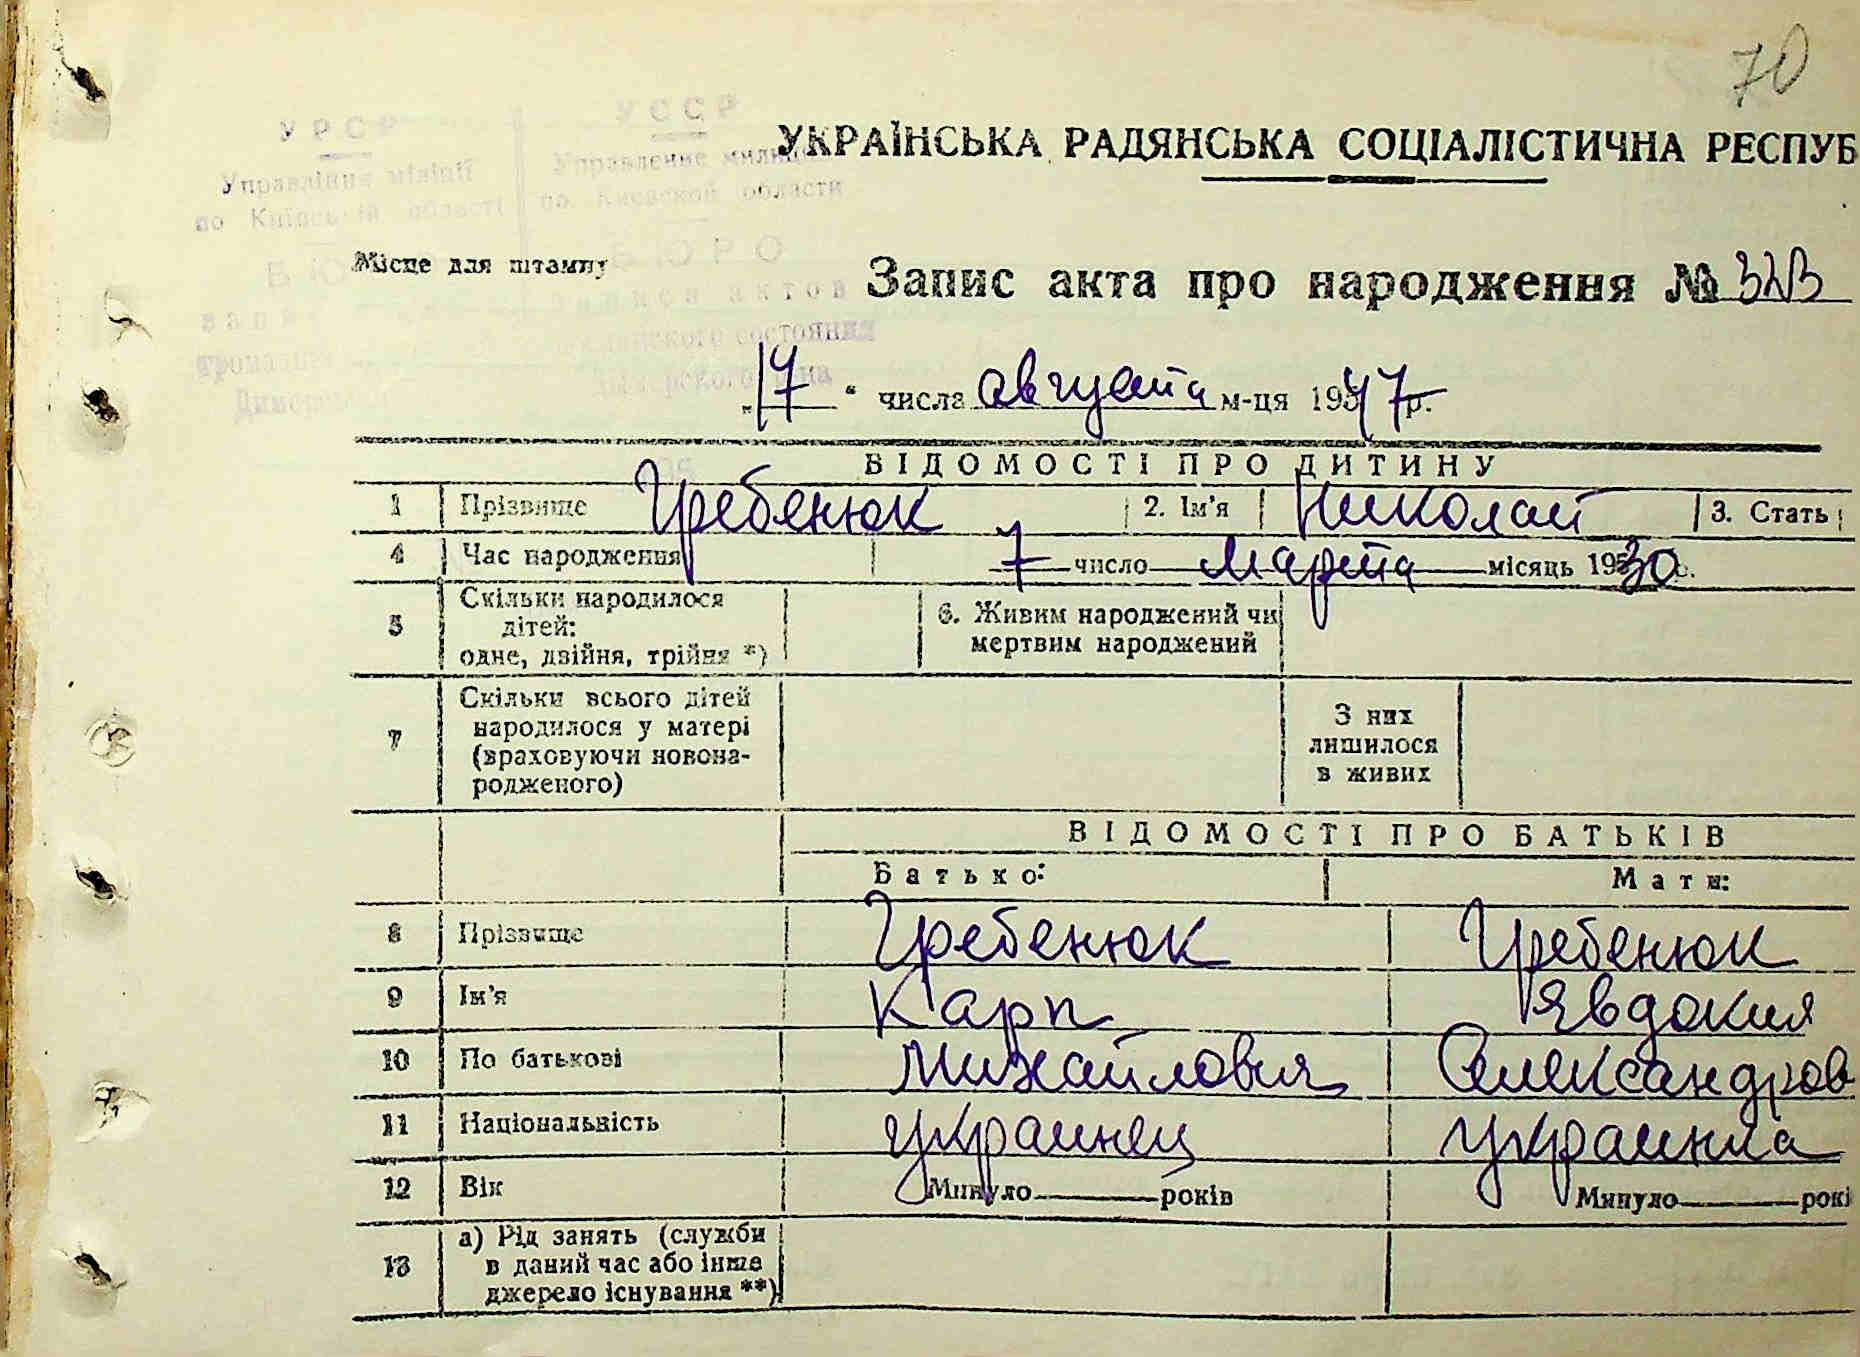 70
УРСР
УССР
Управління міліції
по Київській області
Управление милиции
по Киевской области
БЮРО
УКРАЇНСЬКА РАДЯНСЬКА СОЦІАЛІСТИЧНА РЕСПУБ
Місце для штампу
Запис акта про народження № 323
„17“ числа августа м-ця 1947 р.
ВІДОМОСТІ ПРО ДИТИНУ
1 Прізвище Гребенюк 2. Ім'я Николай 3. Стать
4 Час народження 7 число Марта місяць 1930
5 Скільки народилося дітей: одне, двійня, трійня *) 6. Живим народжений чи мертвим народжений
7 Скільки всього дітей народилося у матері (враховуючи новонародженого) З них лишилося в живих
ВІДОМОСТІ ПРО БАТЬКІВ
Батько: Мати:
8 Прізвище Гребенюк Гребенюк
9 Ім'я Карп Явдокия
10 По батькові Михайлович Александров
11 Національність украинец украинка
12 Вік Минуло років Минуло рокі
13 а) Рід занять (служби в даний час або інше джерело існування **)